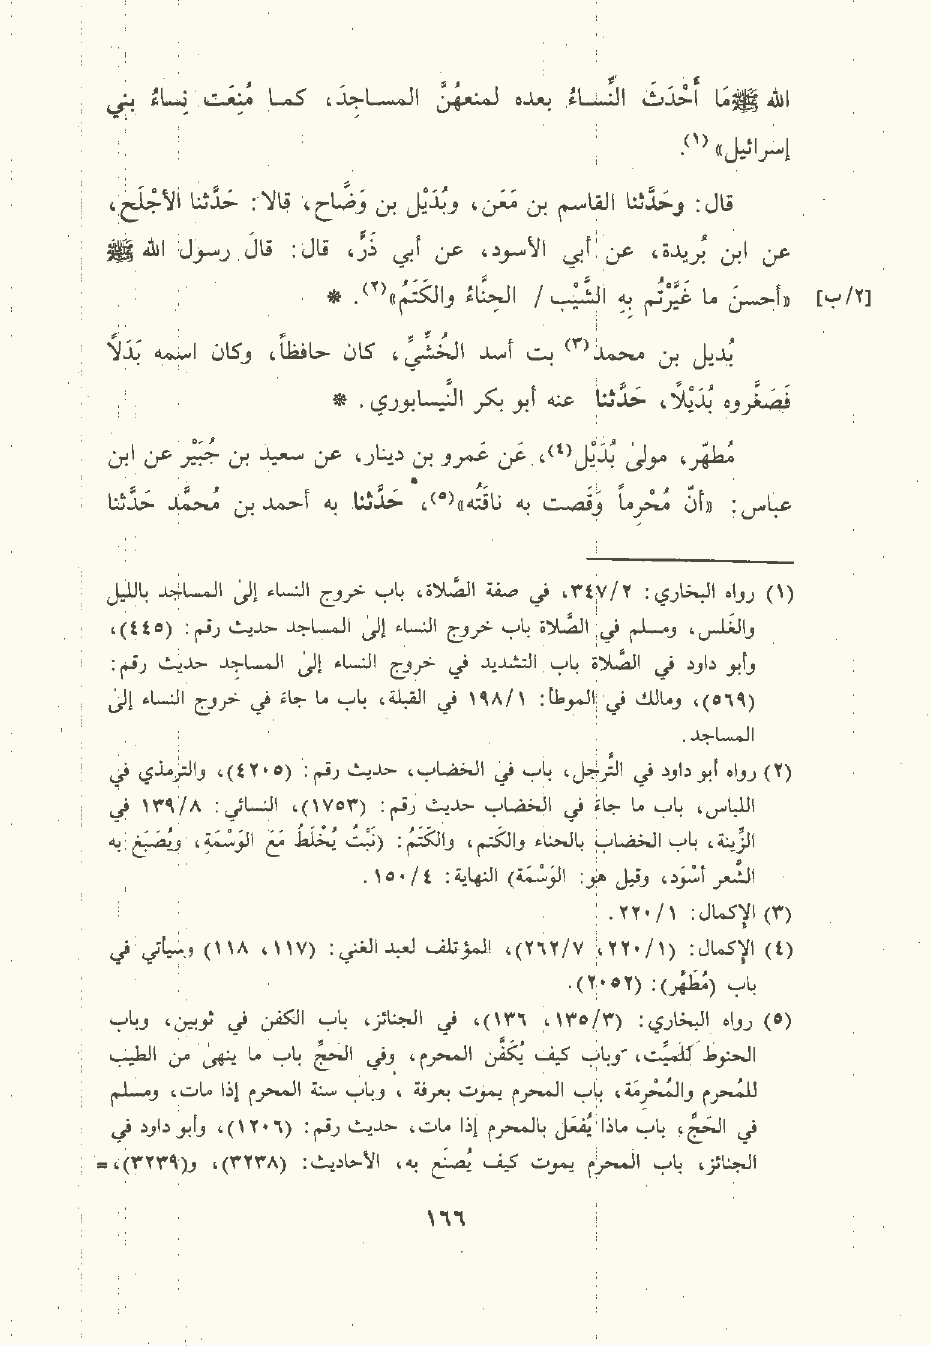 الله ﷺ مَا أَحْدَثَ النِّسَاءُ بعده لمنعهُنَّ المساجِدَ، كما مُنِعَت نِساءُ بني
إسرائيل» (١).
قال: وحَدَّثنا القاسم بن مَعَن، وبُدَيْل بن وَضَّاح، قالا: حَدَّثنا الأجْلَح،
عن ابن بُريدة، عن أبي الأسود، عن أبي ذَرٍّ، قال: قالَ رسول الله ﷺ
[٢/ب] «أحسنَ ما غَيَّرْتُم بِهِ الشَّيْب / الحِنَّاءُ والكَتَمُ» (٢). *
بُديل بن محمد (٣) بت أسد الخُشِّيِّ، كان حافظاً، وكان اسمه بَدَلاً
فَصَغَّروه بُدَيْلاً، حَدَّثنا عنه أبو بكر النَّيسابوري. *
مُطهّر، مولىٰ بُدَيْل (٤)، عَن عَمرو بن دينار، عن سعيد بن جُبَيْر عن ابن
عباس: «أنّ مُحْرِماً وَقَصت به ناقَتُه» (٥)، حَدَّثنا به أحمد بن مُحمَّد حَدَّثنا
(١) رواه البخاري: ٣٤٧/٢، في صفة الصَّلاة، باب خروج النساء إلىٰ المساجد بالليل
والغَلس، ومسلم في الصَّلاة باب خروج النساء إلىٰ المساجد حديث رقم: (٤٤٥)،
وأبو داود في الصَّلاة باب التشديد في خروج النساء إلىٰ المساجِد حديث رقم:
(٥٦٩)، ومالك في الموطأ: ١٩٨/١ في القبلة، باب ما جاءَ في خروج النساء إلىٰ
المساجد.
(٢) رواه أبو داود في التَّرجل، باب في الخضاب، حديث رقم: (٤٢٠٥)، والترمذي في
اللباس، باب ما جاءَ في الخضاب حديث رقم: (١٧٥٣)، النسائي: ١٣٩/٨ في
الزِّينة، باب الخضاب بالحناء والكَتم، والكَتَمُ: (نَبْتُ يُخْلَطُ مَعَ الوَسْمَةِ، ويُصَبَغ به
الشَّعر أسْوَد، وقيل هو: الوَسْمَة) النهاية: ١٥٠/٤.
(٣) الإكمال: ٢٢٠/١.
(٤) الإكمال: (٢٢٠/١، ٢٦٢/٧)، المؤتلف لعبد الغني: (١١٧، ١١٨) وسيأتي في
باب (مُطَهَّر): (٢٠٥٢).
(٥) رواه البخاري: (١٣٥/٣، ١٣٦)، في الجنائز، باب الكفن في ثوبين، وباب
الحنوط للميِّت، وباب كيف يُكَفَّن المحرم، وفي الحجِّ باب ما ينهىٰ من الطيب
للمُحرم والمُحْرِمَة، باب المحرم يموت بعرفة، وباب سنة المحرم إذا مات، ومسلم
في الحَجِّ، باب ماذا يُفعَل بالمحرم إذا مات، حديث رقم: (١٢٠٦)، وأبو داود في
الجنائز، باب المحرم يموت كيف يُصنَع به، الأحاديث: (٣٢٣٨)، و(٣٢٣٩)، =
١٦٦